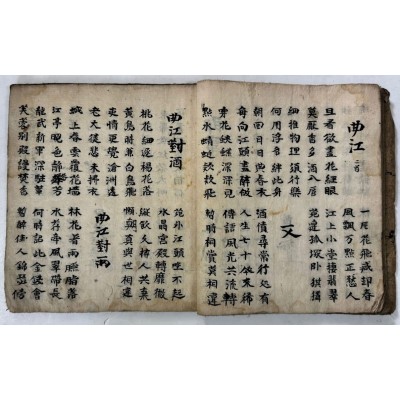 曲江 二首
一片花飛減却春
旦看欲盡花經眼
風飄万點正愁人
莫厭傷多酒入唇
江上小堂棲翡翠
細推物理須行樂
苑邊孤塚臥麒麟
何用浮名絆此身
又
朝回日日典春衣
酒債尋常行処有
每向江頭盡醉皈
人生七十古來稀
穿花蛺蝶深深見
傳語風光共流轉
點水蜻蜓款款飛
暫時相賞莫相違
曲江對酒
苑外江頭坐不起
桃花細逐楊花落
水晶宮殿轉霏微
黃鳥時兼白鳥飛
縱飲久拚人共棄
吏情更覺滄洲遠
懶朝真與世相違
老大徒悲未拂衣
曲江對雨
城上春雲覆苑墻
林花着雨臙脂落
江亭晚色静年芳
水荇牽風翠帶長
龍武新軍深駐輦
何時詔此金錢會
芙蓉別殿謾焚香
暫醉佳人錦瑟傍